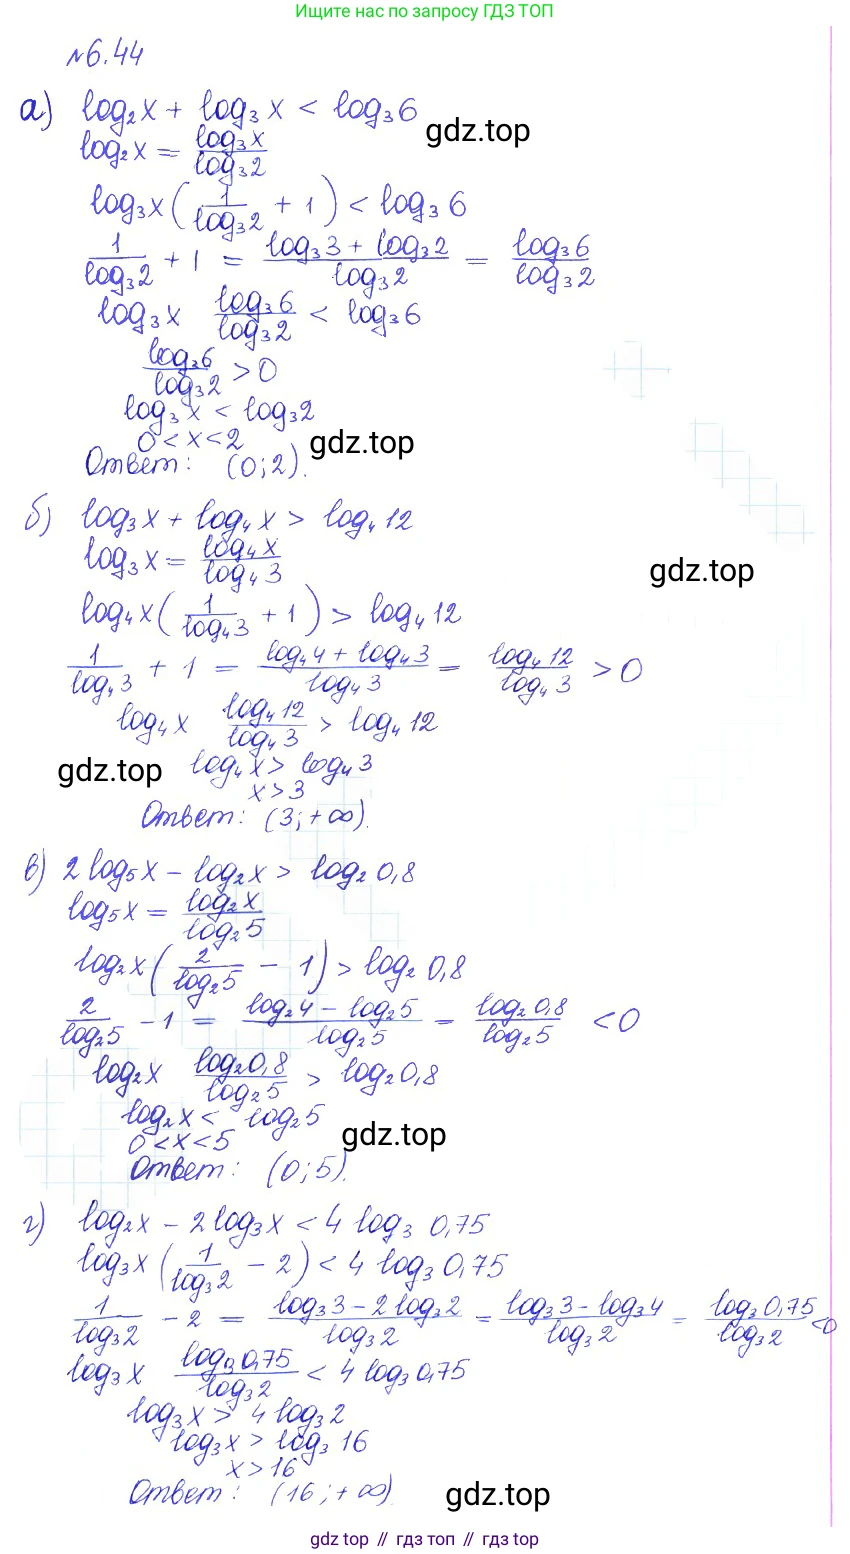 Ищите нас по запросу ГДЗ ТОП
№6.44
а) log₂x + log₃x < log₃6
gdz.top
log₂x = log₃x / log₃2
log₃x (1 / log₃2 + 1) < log₃6
1 / log₃2 + 1 = (log₃3 + log₃2) / log₃2 = log₃6 / log₃2
log₃x log₃6 / log₃2 < log₃6
log₃6 / log₃2 > 0
log₃x < log₃2
0 < x < 2
gdz.top
Ответ: (0; 2).
б) log₃x + log₄x > log₄12
log₃x = log₄x / log₄3
gdz.top
log₄x (1 / log₄3 + 1) > log₄12
1 / log₄3 + 1 = (log₄4 + log₄3) / log₄3 = log₄12 / log₄3 > 0
log₄x log₄12 / log₄3 > log₄12
gdz.top
log₄x > log₄3
x > 3
Ответ: (3; +∞).
в) 2 log₅x − log₂x > log₂0,8
log₅x = log₂x / log₂5
log₂x (2 / log₂5 − 1) > log₂0,8
2 / log₂5 − 1 = (log₂4 − log₂5) / log₂5 = log₂0,8 / log₂5 < 0
log₂x log₂0,8 / log₂5 > log₂0,8
log₂x < log₂5
0 < x < 5
gdz.top
Ответ: (0; 5).
г) log₂x − 2 log₃x < 4 log₃0,75
log₃x (1 / log₃2 − 2) < 4 log₃0,75
1 / log₃2 − 2 = (log₃3 − 2 log₃2) / log₃2 = (log₃3 − log₃4) / log₃2 = log₃0,75 / log₃2 < 0
log₃x log₃0,75 / log₃2 < 4 log₃0,75
log₃x > 4 log₃2
log₃x > log₃16
x > 16
Ответ: (16; +∞)
gdz.top
gdz top // гдз топ // gdz top